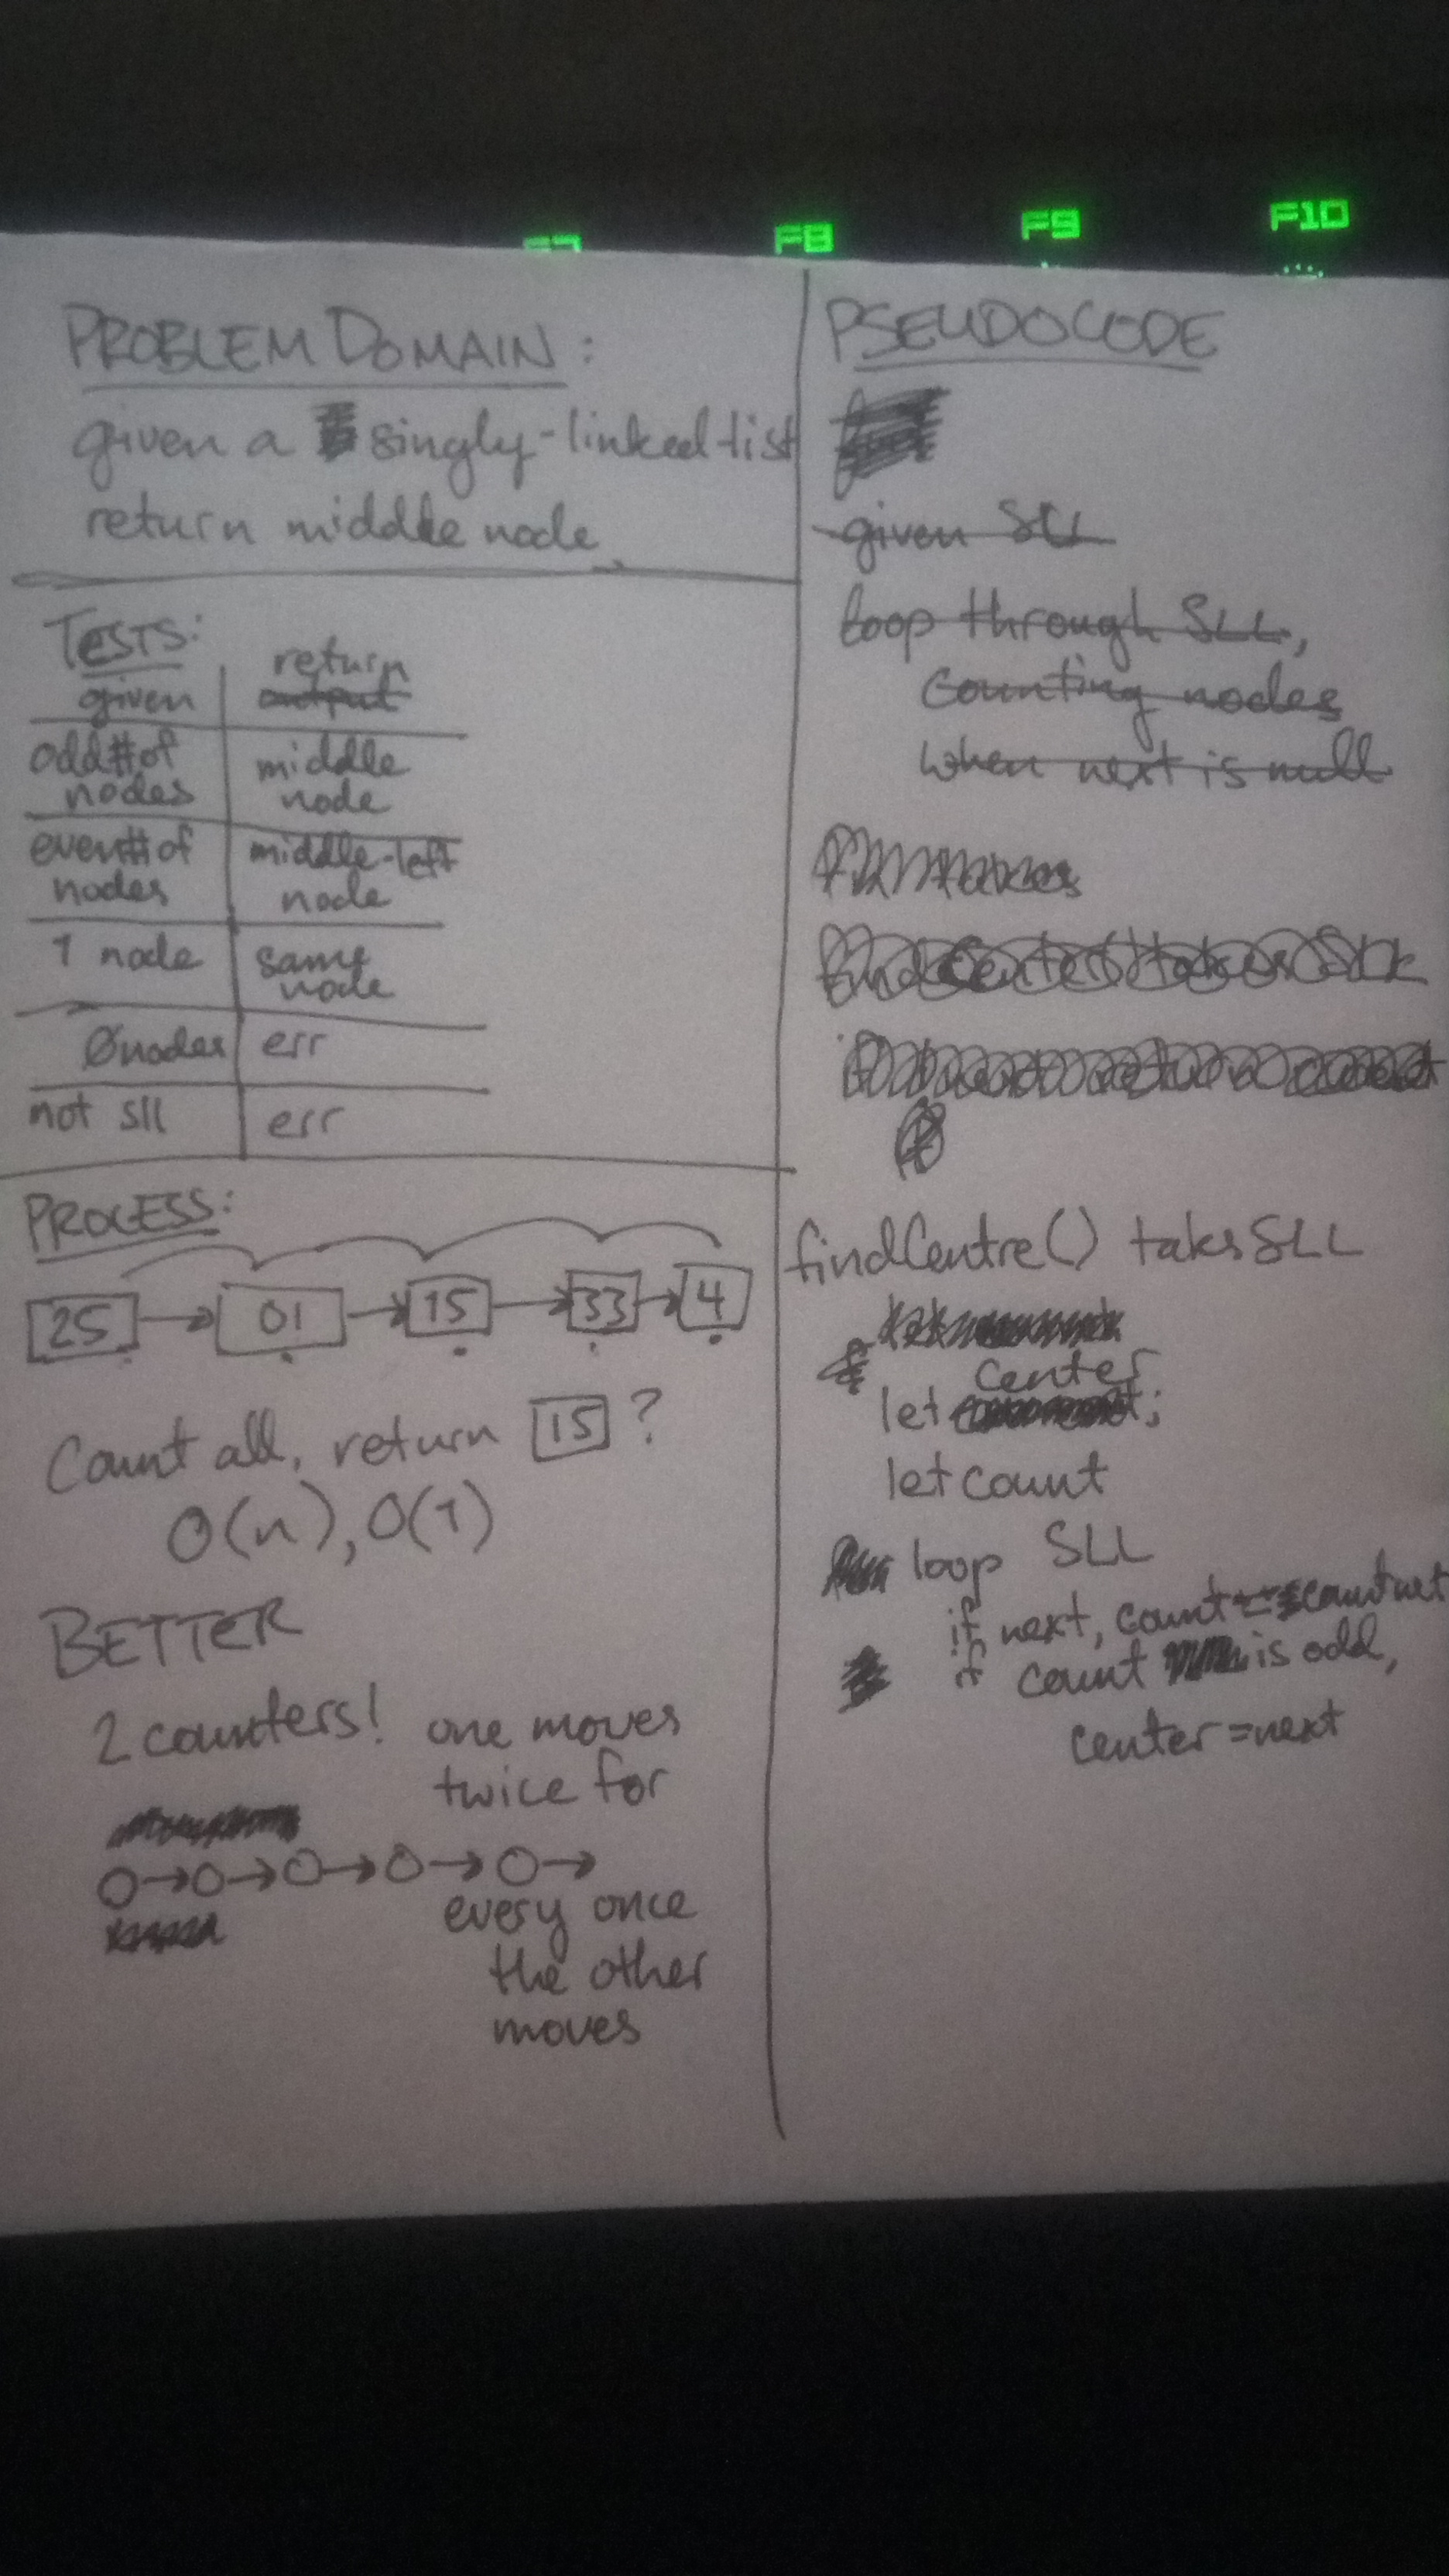 F7
F8
F9
F10
PROBLEM DOMAIN:
given a singly-linked list
return middle node
TESTS:
return
given output
odd # of nodes
middle node
even # of nodes
middle-left node
1 node
same node
Ø nodes
err
not sll
err
PROCESS:
25 → 01 → 15 → 33 → 4
Count all, return 15 ?
O(n), O(1)
BETTER
2 counters! one moves
twice for
every once
the other
moves
PSEUDOCODE
given SLL
loop through SLL,
counting nodes
when next is null
findCentre() takes SLL
center
let ;
let count
loop SLL
if next, count
if count is odd,
center = next